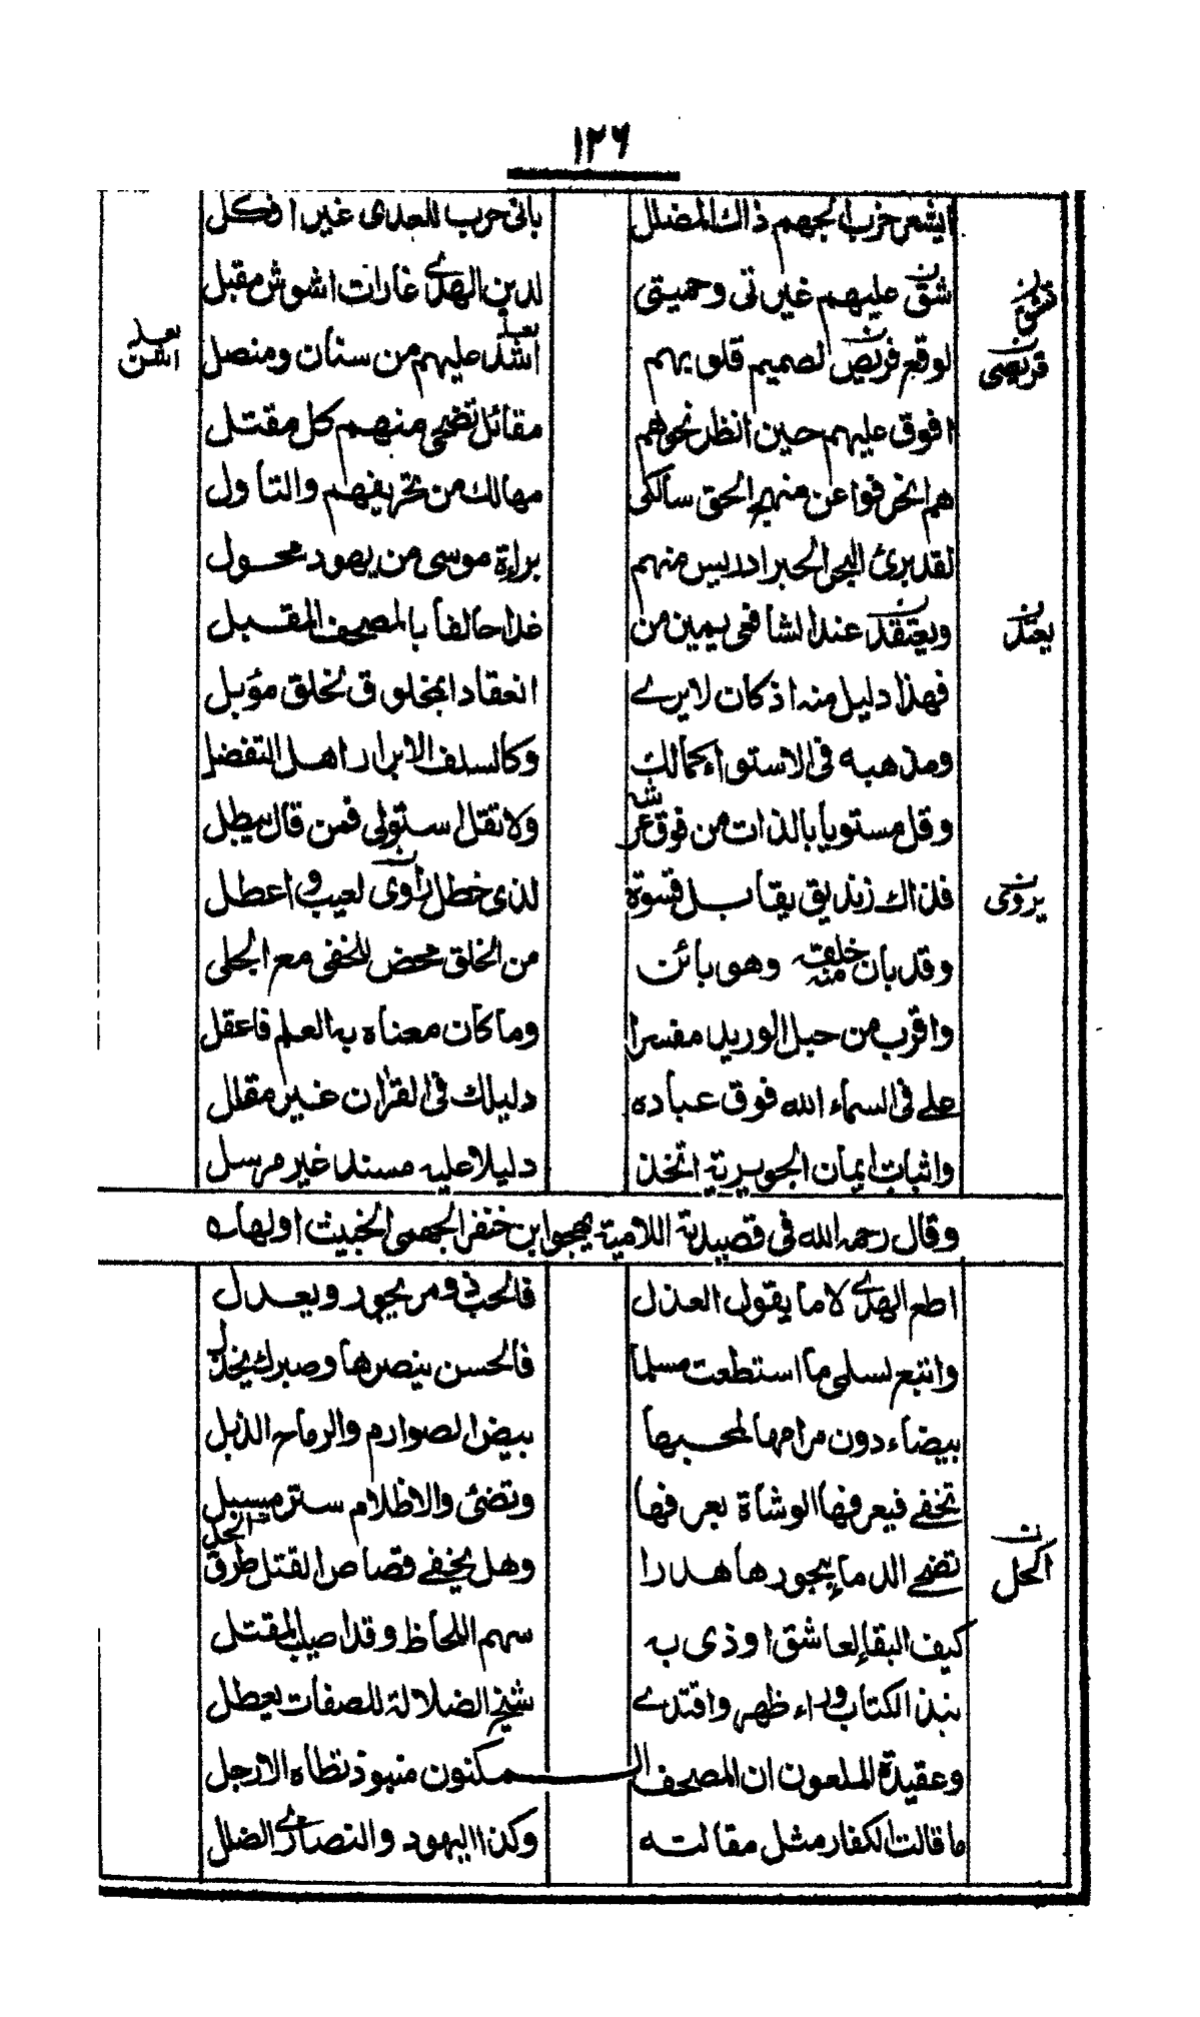 ١٢٦
ايشعر حزب الجهم ذاك المضلل بانى حرب للعدى غير افكل
تشن عليهم غيرتى وحميتى لدين الهدى غارات اشوش مقبل
لوقع قريض لصميم قلوبهم اشد عليهم من سنان ومنصل
افوق عليهم حين انظر نحوهم مقاتل تضحى منهم كل مقتل
هم انحرفوا عن منهج الحق سالكى مهالك من تحريفهم والتأول
لقد برئ البحر الحبر ادريس منهم براءة موسى من يهود محول
ويعتقد عند الشافعى يمين من غدا حالفا بالمصحف المقبل
فهذا دليل منه اذ كان لا يرى انعقادا بمخلوق لخلق مؤبل
ومذهبه فى الاستواء كمالك وكالسلف الابرار اهل التفضل
وقل مستويا بالذات من فوق عرشه ولا تقل استولى فمن قال يبطل
فذاك زنديق يقابل قسوة لذى خطل راوى لعيب واعطل
وقد بان منه خلقه وهو بائن من الخلق محض للخفى مع الجلى
واقرب من حبل الوريد مفسرا وما كان معناه به العلم فاعقل
على فى السماء الله فوق عباده دليلك فى القرآن غير مقلل
واثبات ايمان الجويرية اتخذ دليلا عليه مسندا غير مرسل
وقال رحمه الله فى قصيدته اللامية يهجو ابن خنفر الجهمى الخبيث اولها
اطع الهدى لا ما يقول العذل فالحب ذو مر يجور ويعدل
واتبع لسلمى ما استطعت مسلما فالحسن ينصرها وصبرك يخذل
بيضاء دون مرامها لمحبها بيض الصوارم والرماح الذبل
تخفى فيعرفها الوشاة بعرفها وتضئ والاظلام ستر مسبل
تضحى الدماء بجورها هدرا وهل يخفى قصاص القتل طرق الحل
كيف البقاء لعاشق اوذى به سهم اللحاظ وقد اصيب المقتل
نبذ الكتاب وراء ظهر واقتدى شيخ الضلالة للصفات يعطل
وعقيدة الملعون ان المصحف المكنون منبوذ تطاه الارجل
ما قالت الكفار مثل مقالته وكذا اليهود والنصارى الضلل
قريضى
بعد
اشن
يعتد
يروى
الحل